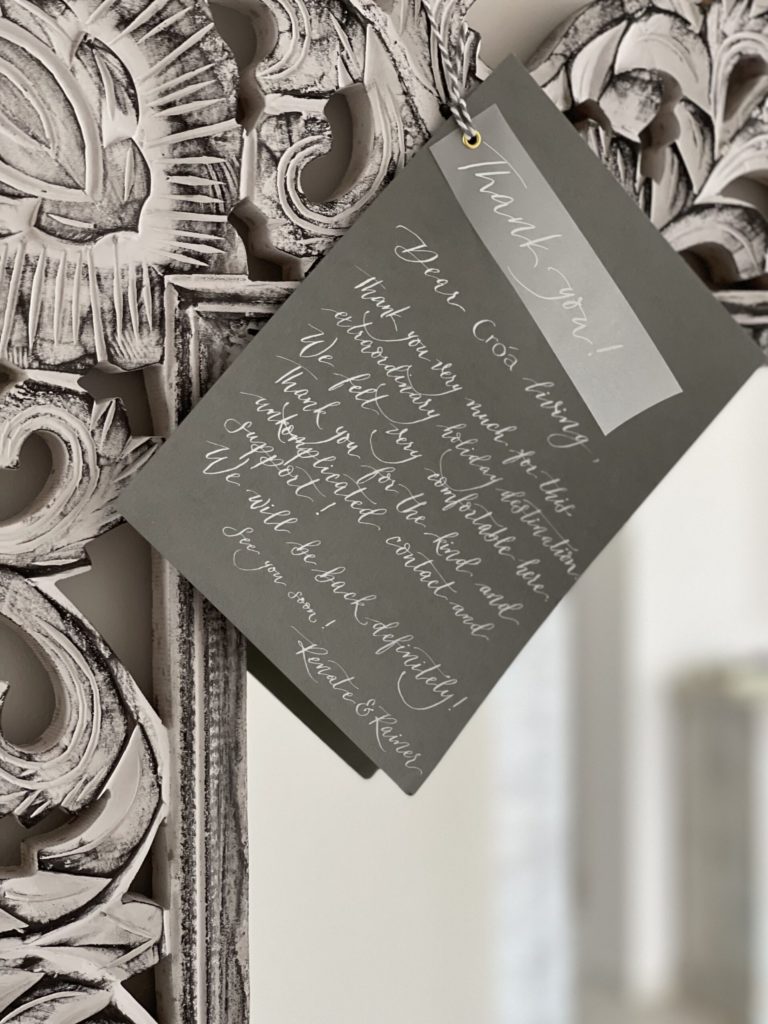 Thank you!
Dear Cróa living,
Thank you very much for this
extraordinary holiday destination.
We felt very comfortable here.
Thank you for the kind and
uncomplicated contact and
support!
We will be back definitely!
See you soon!
Renate & Rainer